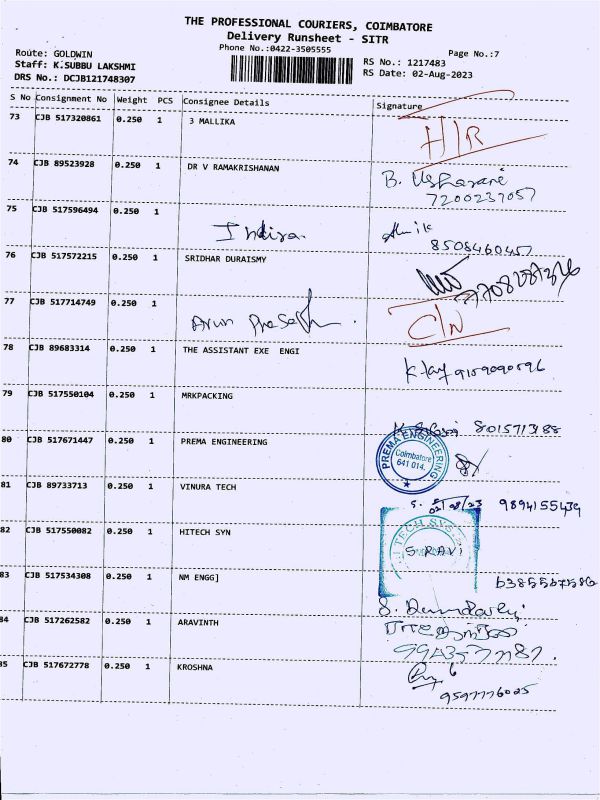 THE PROFESSIONAL COURIERS, COIMBATORE
Delivery Runsheet - SITR
Phone No.:0422-3505555
Page No.:7
Route: GOLDWIN
Staff: K.SUBBU LAKSHMI
DRS No.: DCJB121748307
RS No.: 1217483
RS Date: 02-Aug-2023
S No Consignment No Weight PCS Consignee Details Signature
73 CJB 517320861 0.250 1 3 MALLIKA
74 CJB 89523928 0.250 1 DR V RAMAKRISHANAN
B. Usharani
7200237057
75 CJB 517596494 0.250 1
Indira
8508460457
76 CJB 517572215 0.250 1 SRIDHAR DURAISMY
77 CJB 517714749 0.250 1
Arun Prasath
78 CJB 89683314 0.250 1 THE ASSISTANT EXE ENGI
79 CJB 517550104 0.250 1 MRKPACKING
80 CJB 517671447 0.250 1 PREMA ENGINEERING
PREMA ENGINEERING
Coimbatore
641 014.
81 CJB 89733713 0.250 1 VINURA TECH
02/08/23 9894155434
82 CJB 517550082 0.250 1 HITECH SYN
S RAVI
83 CJB 517534308 0.250 1 NM ENGG]
84 CJB 517262582 0.250 1 ARAVINTH
85 CJB 517672778 0.250 1 KROSHNA
9597776025